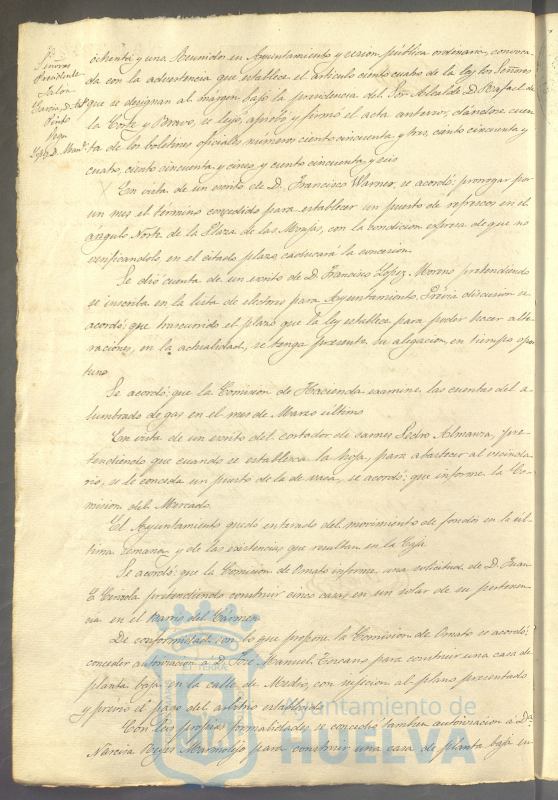 Señores
Presidente
Salon
Garcia, D. Ant.
Pinto
Vega
Lopez D. Man.
ochenta y uno. Reunidos en Ayuntamiento y sesion pública ordinaria, convoca-
da con la advertencia que establece el artículo ciento cuatro de la ley los Señores
que se designan al márgen, bajo la presidencia del Sor. Alcalde D. Rafael de
la Corte y Bravo, se leyó, aprobó y firmó el acta anterior, dándose cuen-
ta de los boletines oficiales numeros ciento cincuenta y tres, ciento cincuenta y
cuatro, ciento cincuenta y cinco, y ciento cincuenta y seis
En vista de un escrito de D. Francisco Warner, se acordó: prorogar por
un mes el término concedido para establecer un puesto de refrescos en el
ángulo Norte de la Plaza de las Monjas, con la condicion espresa de que no
verificandolo en el citado plazo, caducará la concesion.
Se dió cuenta de un escrito de D. Francisco Lopez Moreno pretendiendo
se inscriba en la lista de electores para Ayuntamiento. Prévia discusion se
acordó: que trascurrido el plazo que la ley establece para poder hacer alte-
raciones, en la actualidad, se tenga presente su alegacion, en tiempo opor-
tuno.
Se acordó: que la Comision de Hacienda examine las cuentas del a-
lumbrado de gas en el mes de Marzo último
En vista de un escrito del cortador de carnes Pedro Almansa, pre-
tendiendo que cuando se establezca la hoja, para abastecer al vecinda-
rio, se le conceda un puesto de la de vaca, se acordó: que informe la Co-
mision del Mercado.
El Ayuntamiento quedó enterado del movimiento de fondos en la úl-
tima semana y de las existencias que resultan en la Caja.
Se acordó: que la Comision de Ornato informe una solicitud de D. Juan
pretendiendo construir cinco casas en un solar de su pertenen-
cia en el Barrio del Carmen
De conformidad con lo que propone la Comision de Ornato se acordó:
conceder autorizacion á D. José Manuel Toscano para construir una casa de
planta baja en la calle de Medio, con sujecion al plano presentado
y previo el pago del arbitrio establecido.
Con las propias formalidades se concedió tambien autorizacion á Da.
Narcisa Reyes Marmolejo para construir una casa de planta baja en
Ayuntamiento de
HUELVA